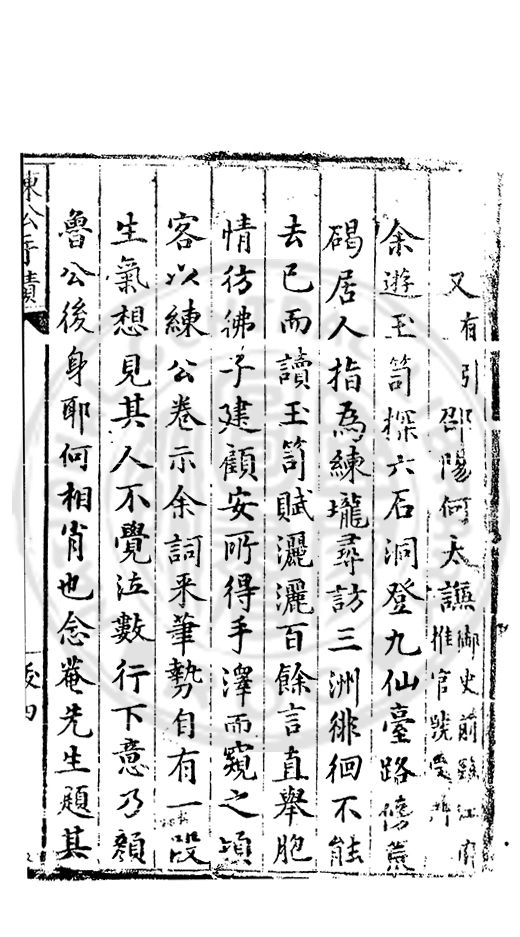 又有引邵陽何太謙御史前
推官號
余遊玉笥探六石洞登九仙臺路傍
碣居人指為練壠尋訪三洲徘徊不能
去已而讀玉笥賦灑灑百餘言直舉胞
情彷彿子建顧安所得手澤而窺之頃
客以練公卷示余詞采筆勢自有一段
生氣想見其人不覺泣數行下意乃顏
魯公後身耶何相肖也念菴先生題其
練公手蹟
後四